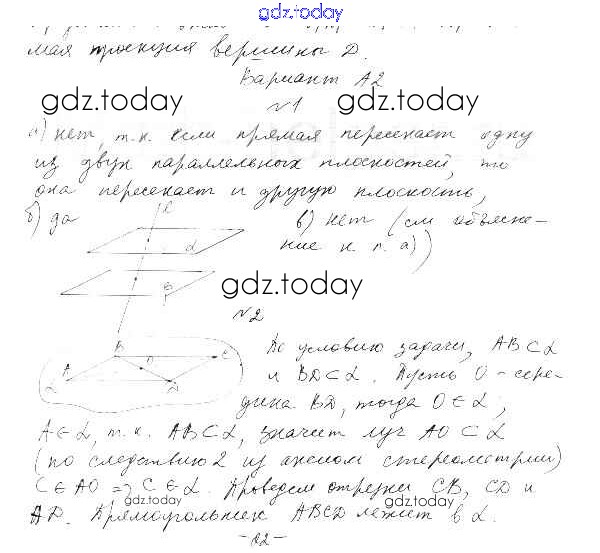 gdz.today
мая проекция вершины D.
Вариант А2
gdz.today gdz.today
№1
а) нет, т.к. если прямая пересекает одну
из двух параллельных плоскостей, то
она пересекает и другую плоскость,
б) да
в) нет (см объясне-
ние к п. а))
ℓ
α
β
gdz.today
№2
По условию задачи, AB⊂α
и BD⊂α. Пусть O - сере-
дина BD, тогда O∈α;
B
C
A
O
D
α
A∈α, т.к. AB⊂α, значит луч AO⊂α
(по следствию 2 из аксиом стереометрии)
C∈AO ⇒ C∈α. Проведем отрезки CB, CD и
gdz.today gdz.today
AD. Прямоугольник ABCD лежит в α.
-82-